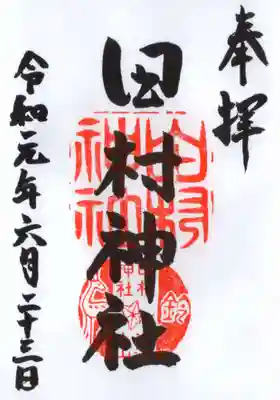 奉拝
田村神社
令和元年六月二十三日